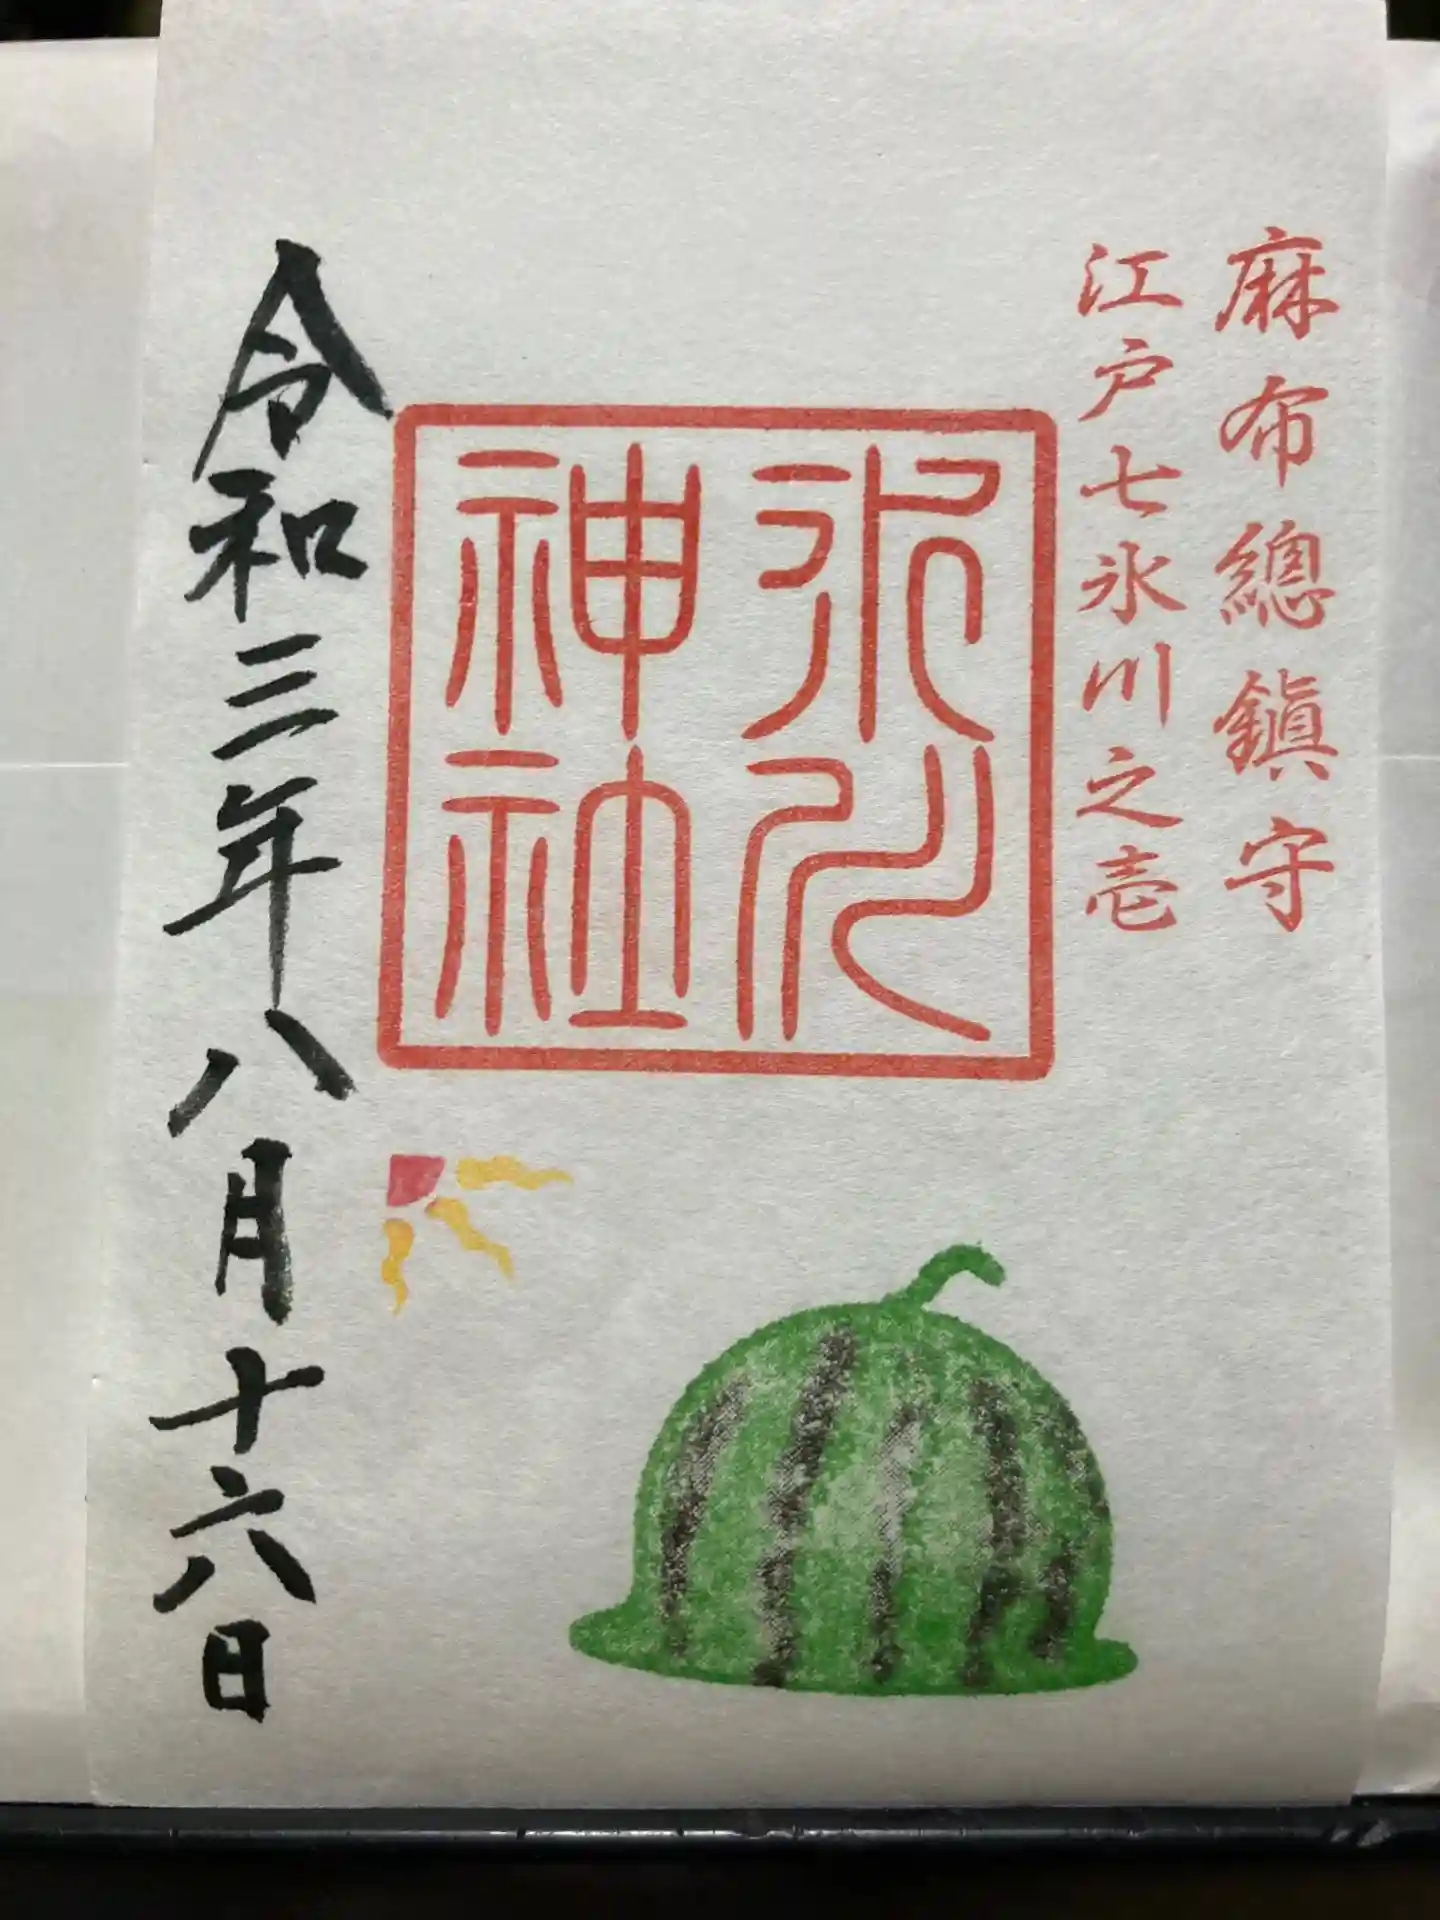 麻布總鎭守
江戸七氷川之壱
氷川
神社
令和三年八月十六日